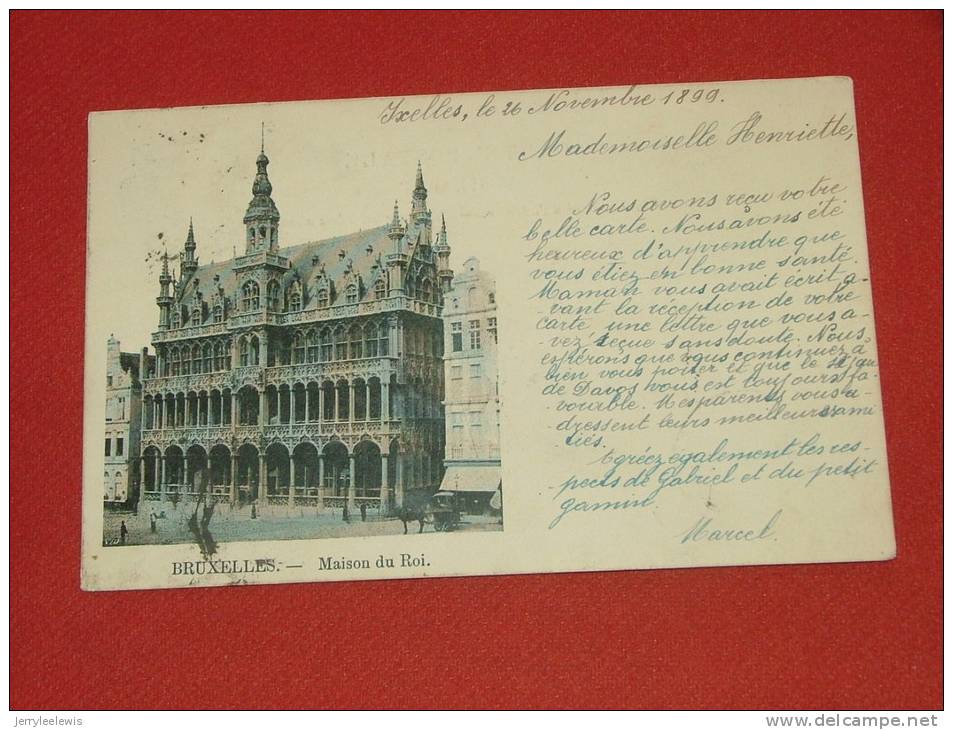 Ixelles, le 26 Novembre 1899.
Mademoiselle Henriette,
Nous avons reçu votre
belle carte. Nous avons été
heureux d'apprendre que
vous étiez en bonne santé.
Maman vous avait écrit a-
vant la réception de votre
carte, une lettre que vous a-
vez reçue sans doute. Nous
espérons que vous continuez à
bien vous porter et que le
de Davos vous est toujours fa-
vourble. Mes parents vous a-
dressent leurs meilleurs ami
tiés.
Agréez également les res-
pects de Gabriel et du petit
gamin
Marcel.
BRUXELLES. — Maison du Roi.
jerryleelewis
www.delcampe.net